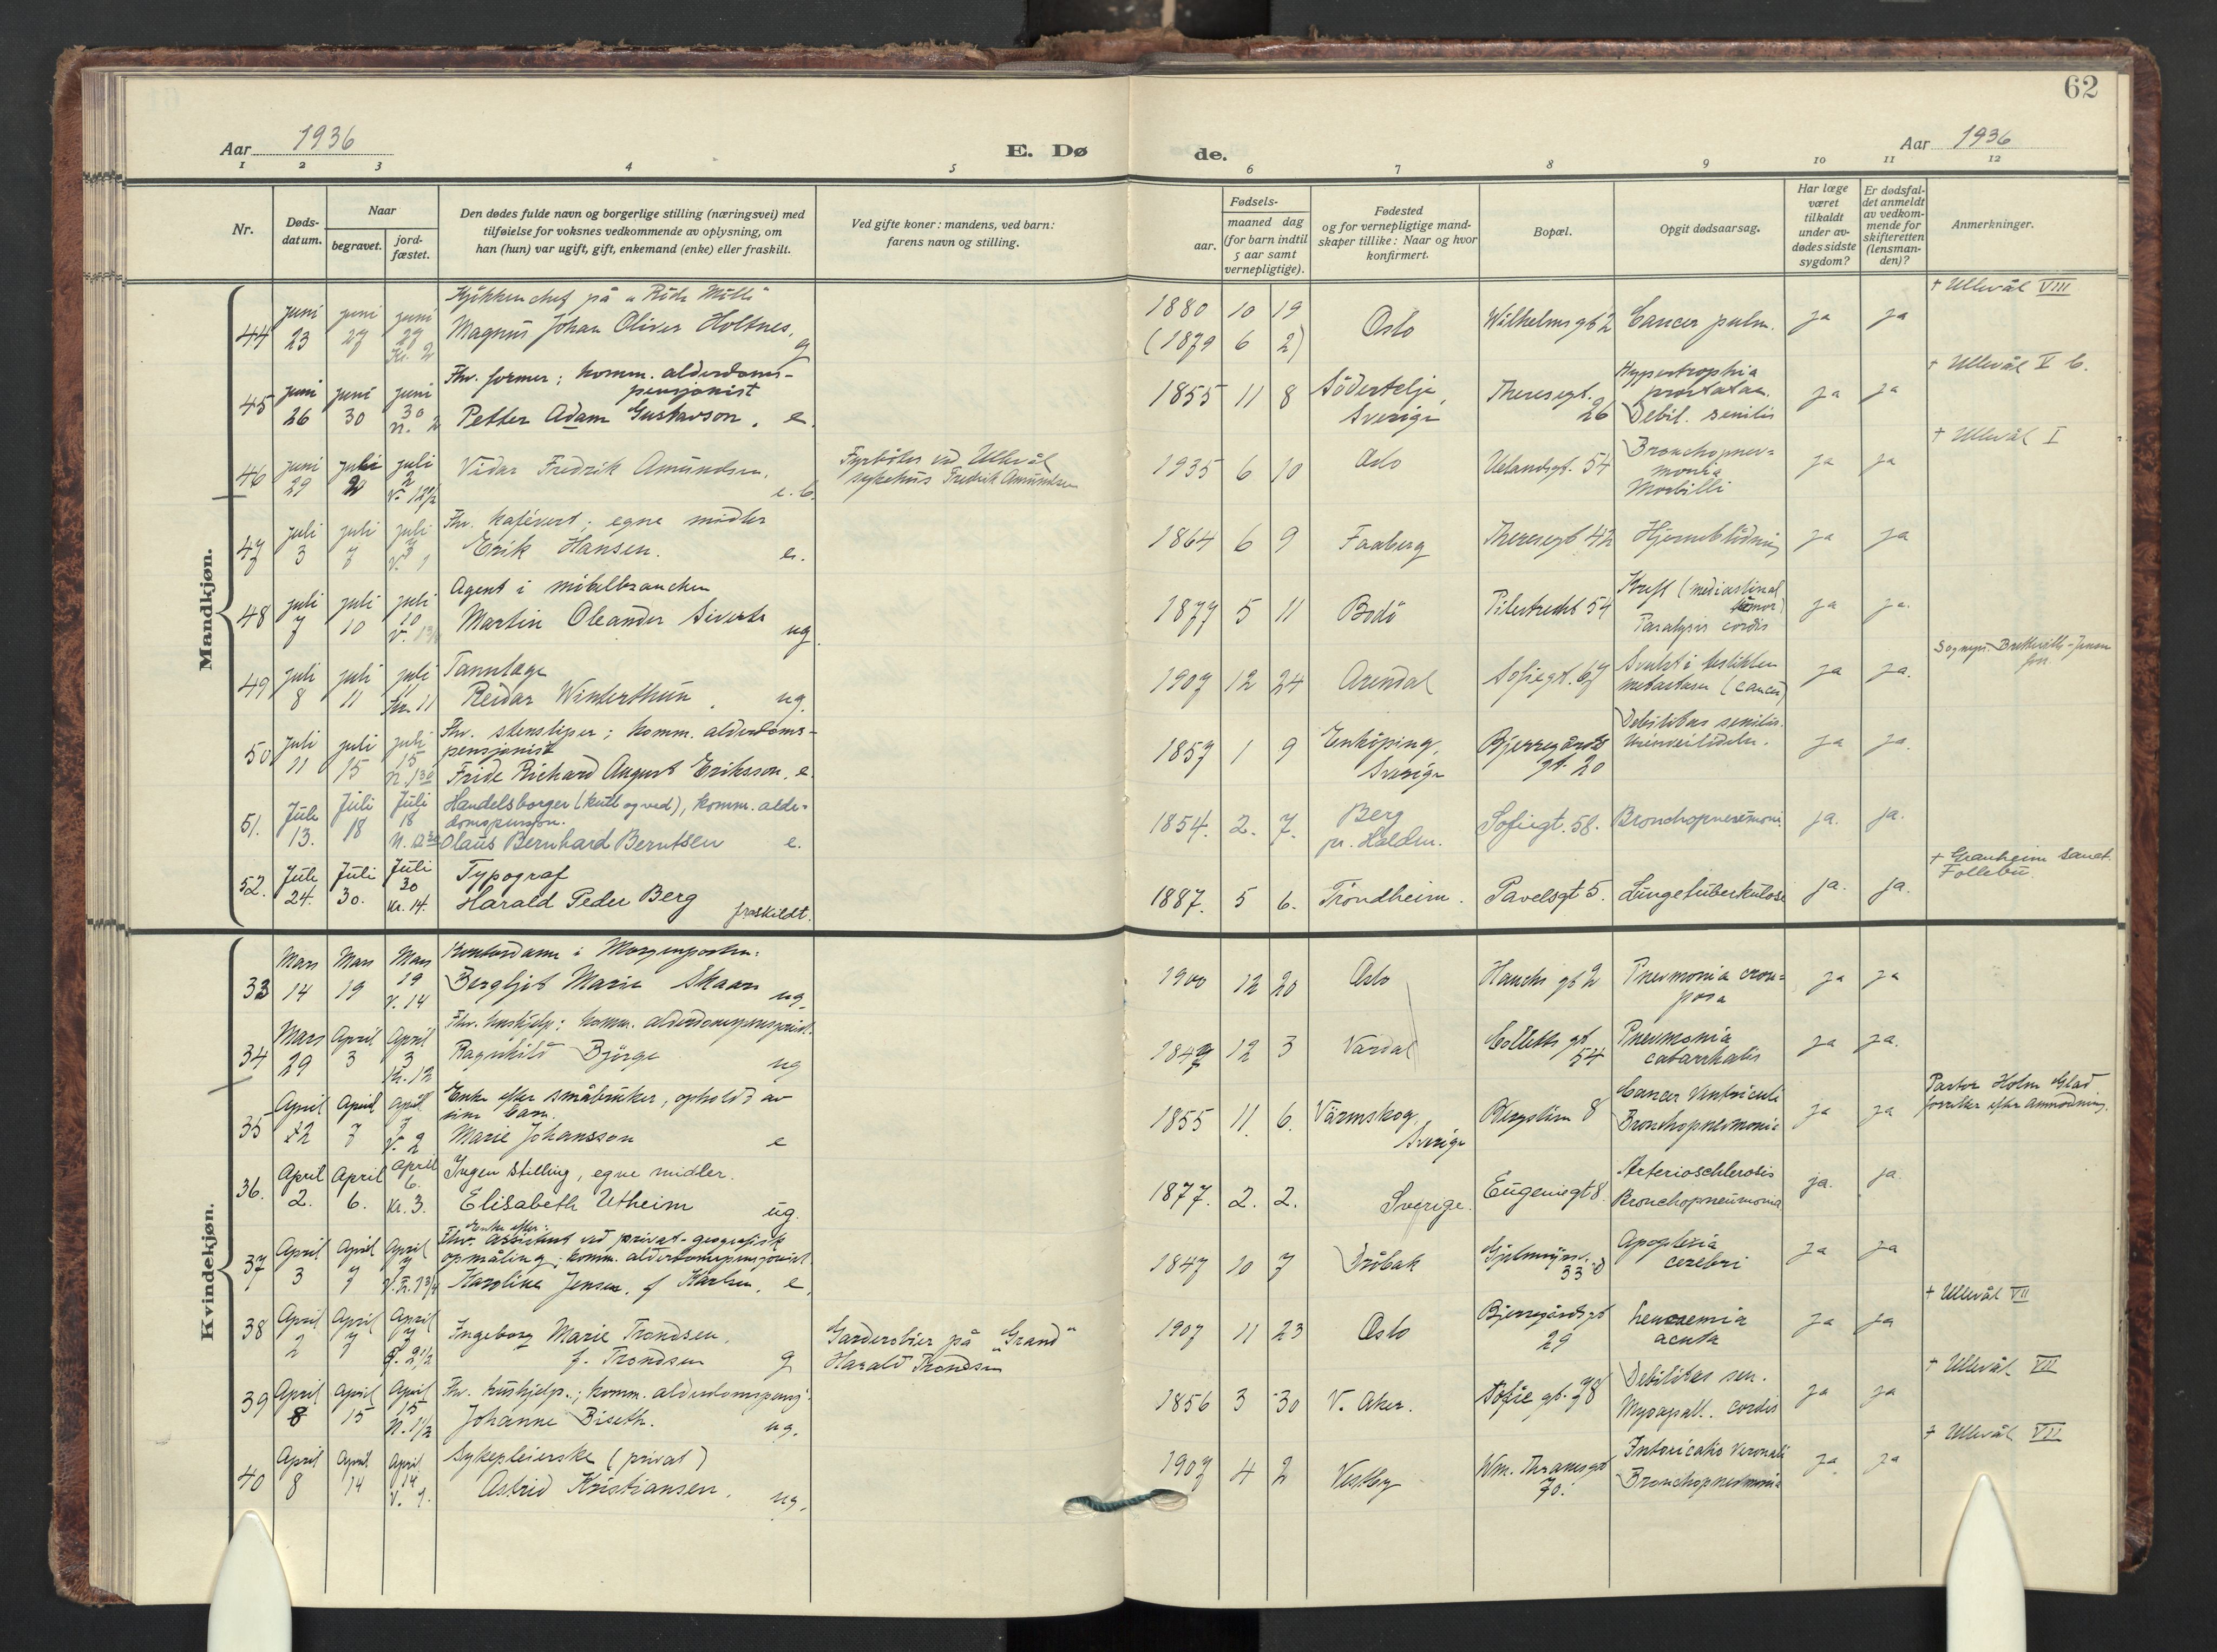 62
Aar 1936
E. Dø
de.
Aar 1936
1 2 3 4 5 6 7 8 9 10 11 12
Nr.
Døds-
datum.
Naar
begravet.
jord-
fæstet.
Den dødes fulde navn og borgerlige stilling (næringsvei) med
tilføielse for voksnes vedkommende av oplysning, om
han (hun) var ugift, gift, enkemand (enke) eller fraskilt.
Ved gifte koner: mandens, ved barn:
farens navn og stilling.
Fødsels-
aar.
maaned dag
(for barn indtil
5 aar samt
vernepligtige).
Fødested
og for vernepligtige mand-
skaper tillike: Naar og hvor
konfirmert.
Bopæl.
Opgit dødsaarsag.
Har læge
været
tilkaldt
under av-
dødes sidste
sygdom?
Er dødsfal-
det anmeldt
av vedkom-
mende for
skifteretten
(lensman-
den)?
Anmerkninger.
Mandkjøn.
44 juni 23 juni 27 juni 27 Kl. 2
Kjøkkenchef på "Røde Mølle"
Magnus Johan Oliver Holtnes. g
1880 10 19
(1879 6 2)
Oslo
Wilhelms gt 2
Cancer pulm.
ja ja
† Ullevål VIII
45 juni 26 juni 30 juni 30 N. 2
Fhv. former; komm. alderdoms-
pensjonist
Petter Adam Gustavson. e.
1855 11 8
Södertelje,
Sverige
Theresegt.
26
Hypertrophia
prostatae.
Debil. senilis
ja ja
† Ullevål V b.
46 juni 29 juli 2 juli 2 V. 12½
Vidar Fredrik Amundsen.
e. b.
Fyrbøter ved Ullevål
sykehus Fredrik Amundsen
1935 6 10
Oslo
Uelandsgt. 54
Bronchopnev=
monia
Morbilli
ja ja
† Ullevål I
47 juli 3 juli 7 juli 7 V. 1
Fhv. kafévert; egne midler
Erik Hansen. e.
1864 6 9
Faaberg
Theresegt 42
Hjerneblödning
ja ja
48 juli 7 juli 10 juli 10
Agent i möbelbranchen
Martin Oleander Siverts
ug.
1877 5 11
Bodö
Pilestredet 54
Kreft (mediastinal
tumor)
Paralysis cordis
ja ja.
49 juli 8 juli 11 juli 11 Kr. 11
Tannlæge
Reidar Winterthun. ug.
1907 12 24
Arendal
Sofiegt. 67
Svulst i testiklen
metastaser (cancer)
ja ja.
Sognepr. Brettville-Jensen
forr.
50 juli 11 juli 15 juli 15 N. 1 30
Fhv. stensliper; komm. alderdoms-
pensjonist
Fride Richard August Eriksson. e.
1857 1 9
Enköping,
Sverige
Bjerregårds
gt. 20
Debilitas senilis.
Urinveilidelse.
ja ja.
51. Juli 13. Juli 18 Juli 18 N. 12 30
Handelsborger (kull og ved), komm. alder=
domspensjon.
Olaus Bernhard Berntsen e.
1854. 2. 7.
Berg
pr. Halden.
Sofiegt. 58.
Bronchopneumoni.
ja. ja.
52. Juli 24. Juli 30. Juli 30 Kr. 14.
Typograf
Harald Peder Berg
fraskildt.
1887. 5 6.
Tröndheim.
Pavelsgt 5.
Lungetuberkulose
ja. ja.
† Granheim Sanat.
Follebu.
Kvindekjøn.
33 Mars 14 Mars 19 Mars 19 V. 14
Kontordame i Morgenposten:
Bergljot Marie Skaar ug.
1900 12 20
Oslo
Hauchs gt 2
Pnevmonia crou=
posa
ja ja
34 Mars 29 April 3 April 3 Kr. 12
Fhv. hushjelp; komm. alderdomspensjonist.
Ragnhild Björge ug
1847 12 3
Vardal
Colletts gt
54
Pnevmonia
catarrhalis
ja ja.
35 April 2 April 7 April 7 V. 2
Enke efter småbruker, opholdt av
sine barn.
Marie Johansson e
1855 11. 6.
Värmskog,
Sverige
Bergslien 8
Cancer Ventriculi
Bronchopnevmonia
ja ja
Pastor Holm Glad
forretter efter anmodning.
36. April 2. April 6. April 6. Kr. 3.
Ingen stilling, egne midler.
Elisabeth Utheim ug.
1877. 2. 2.
Sverige.
Eugeniegt 8.
Arteriosclerosis
Bronchopneumonia
ja. ja.
37 April 3 April 7 April 7
Enke efter:
Fhv. assistent ved privat-geografisk
opmåling; komm. alderdomspensjonist
Karoline Jensen. f Karlsen. e.
1847 10 7
Dröbak
33
Apoplexia
cerebri
ja ja
38 April 2 April 7 April 7 2½
Ingeborg Marie Trondsen.
f. Trondsen g
Garderobier på "Grand"
Harald Trondsen
1907 11 23
Oslo
Bjerregårdsgt
29
Leucaemia
acuta
ja ja
† Ullevål VII
39 April 8 April 15 April 15 N. 1½
Fhv. hushjelp.; komm. alderdomspensj.
Johanne Biseth. ug.
1856 3 30
V. Aker.
Sofie gt.
Debilitas sen.
cordis
ja ja
† Ullevål VII
40 April 8 April 14 April 14 V. 1.
Sykepleierske (privat)
Astrid Kristiansen. ug.
1907 4 2
Vestby
Wm. Thranesgt
70.
Intoxicatio Veronali
Bronchopnevmonia
ja ja
† Ullevål VII